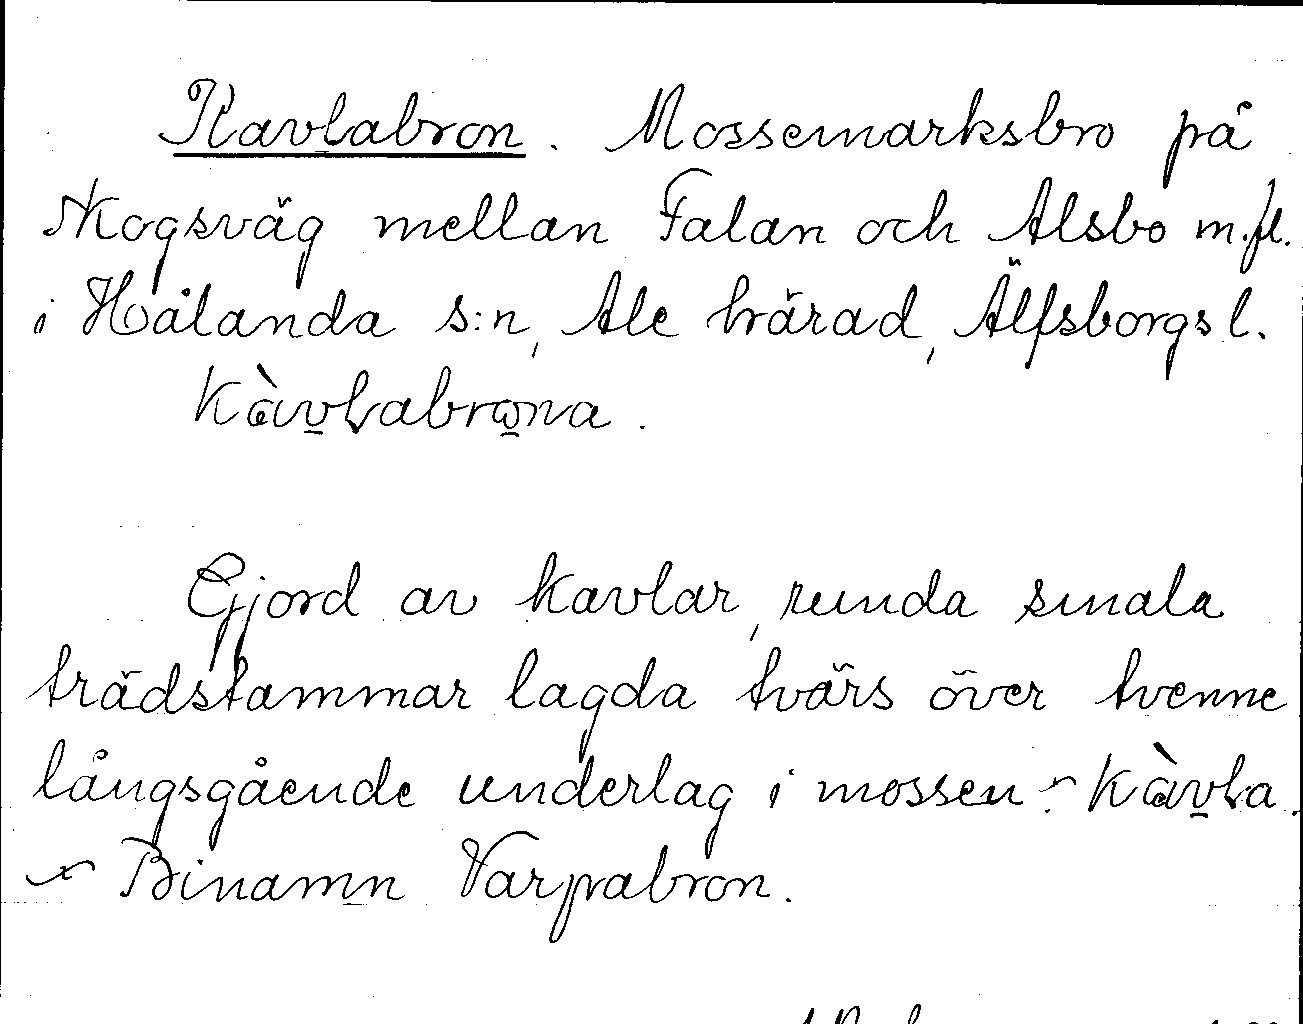 Kavlabron. Mossemarksbro på
skogsväg mellan Falan och Alsbo m.fl.
i Hålanda s:n, Ale härad, Älfsborgs l.
Kàvlabrona.
Gjord av kavlar, runda smala
trädstammar lagda tvärs över tvenne
långsgående underlag i mossen. ~ Kàvla.
~ Binamn Varpabron.